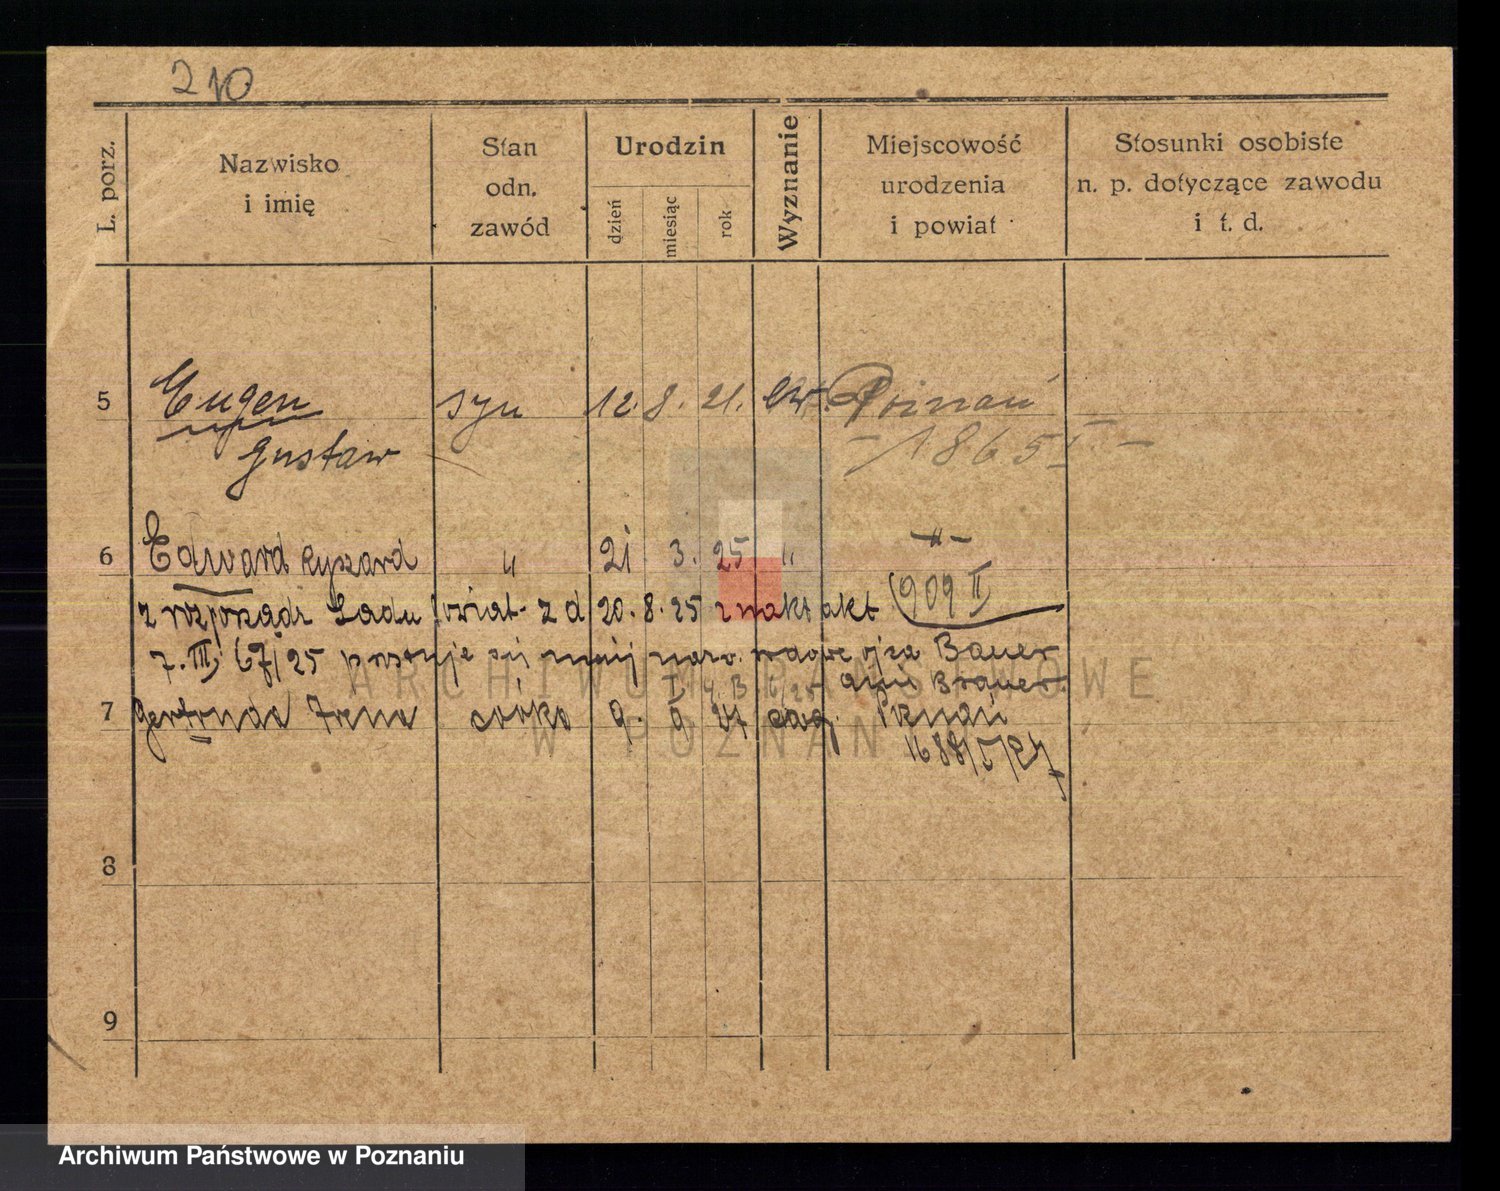 210
L. porz.
Nazwisko
i imię
Stan
odn.
zawód
Urodzin
dzień
miesiąc
rok
Wyznanie
Miejscowość
urodzenia
i powiat
Stosunki osobiste
n. p. dotyczące zawodu
i t. d.
5 Eugen syn 12. 8. 21. Ew. Poznań
Gustaw - 1865 I -
6 Edward Ryszard " 21. 3. 25 " -"-
909 II
z rozporządz Sądu powiat. z d 20. 8. 25 znak akt
7. III, 67/25 prostuje się nazw. ojca Bauer
I 4. B 6/25 Brauer.
7 Gertruda Irena córka 9. 9 27 Poznań
1688/I/27
8
9
ARCHIWUM PAŃSTWOWE
W POZNANIU
Archiwum Państwowe w Poznaniu